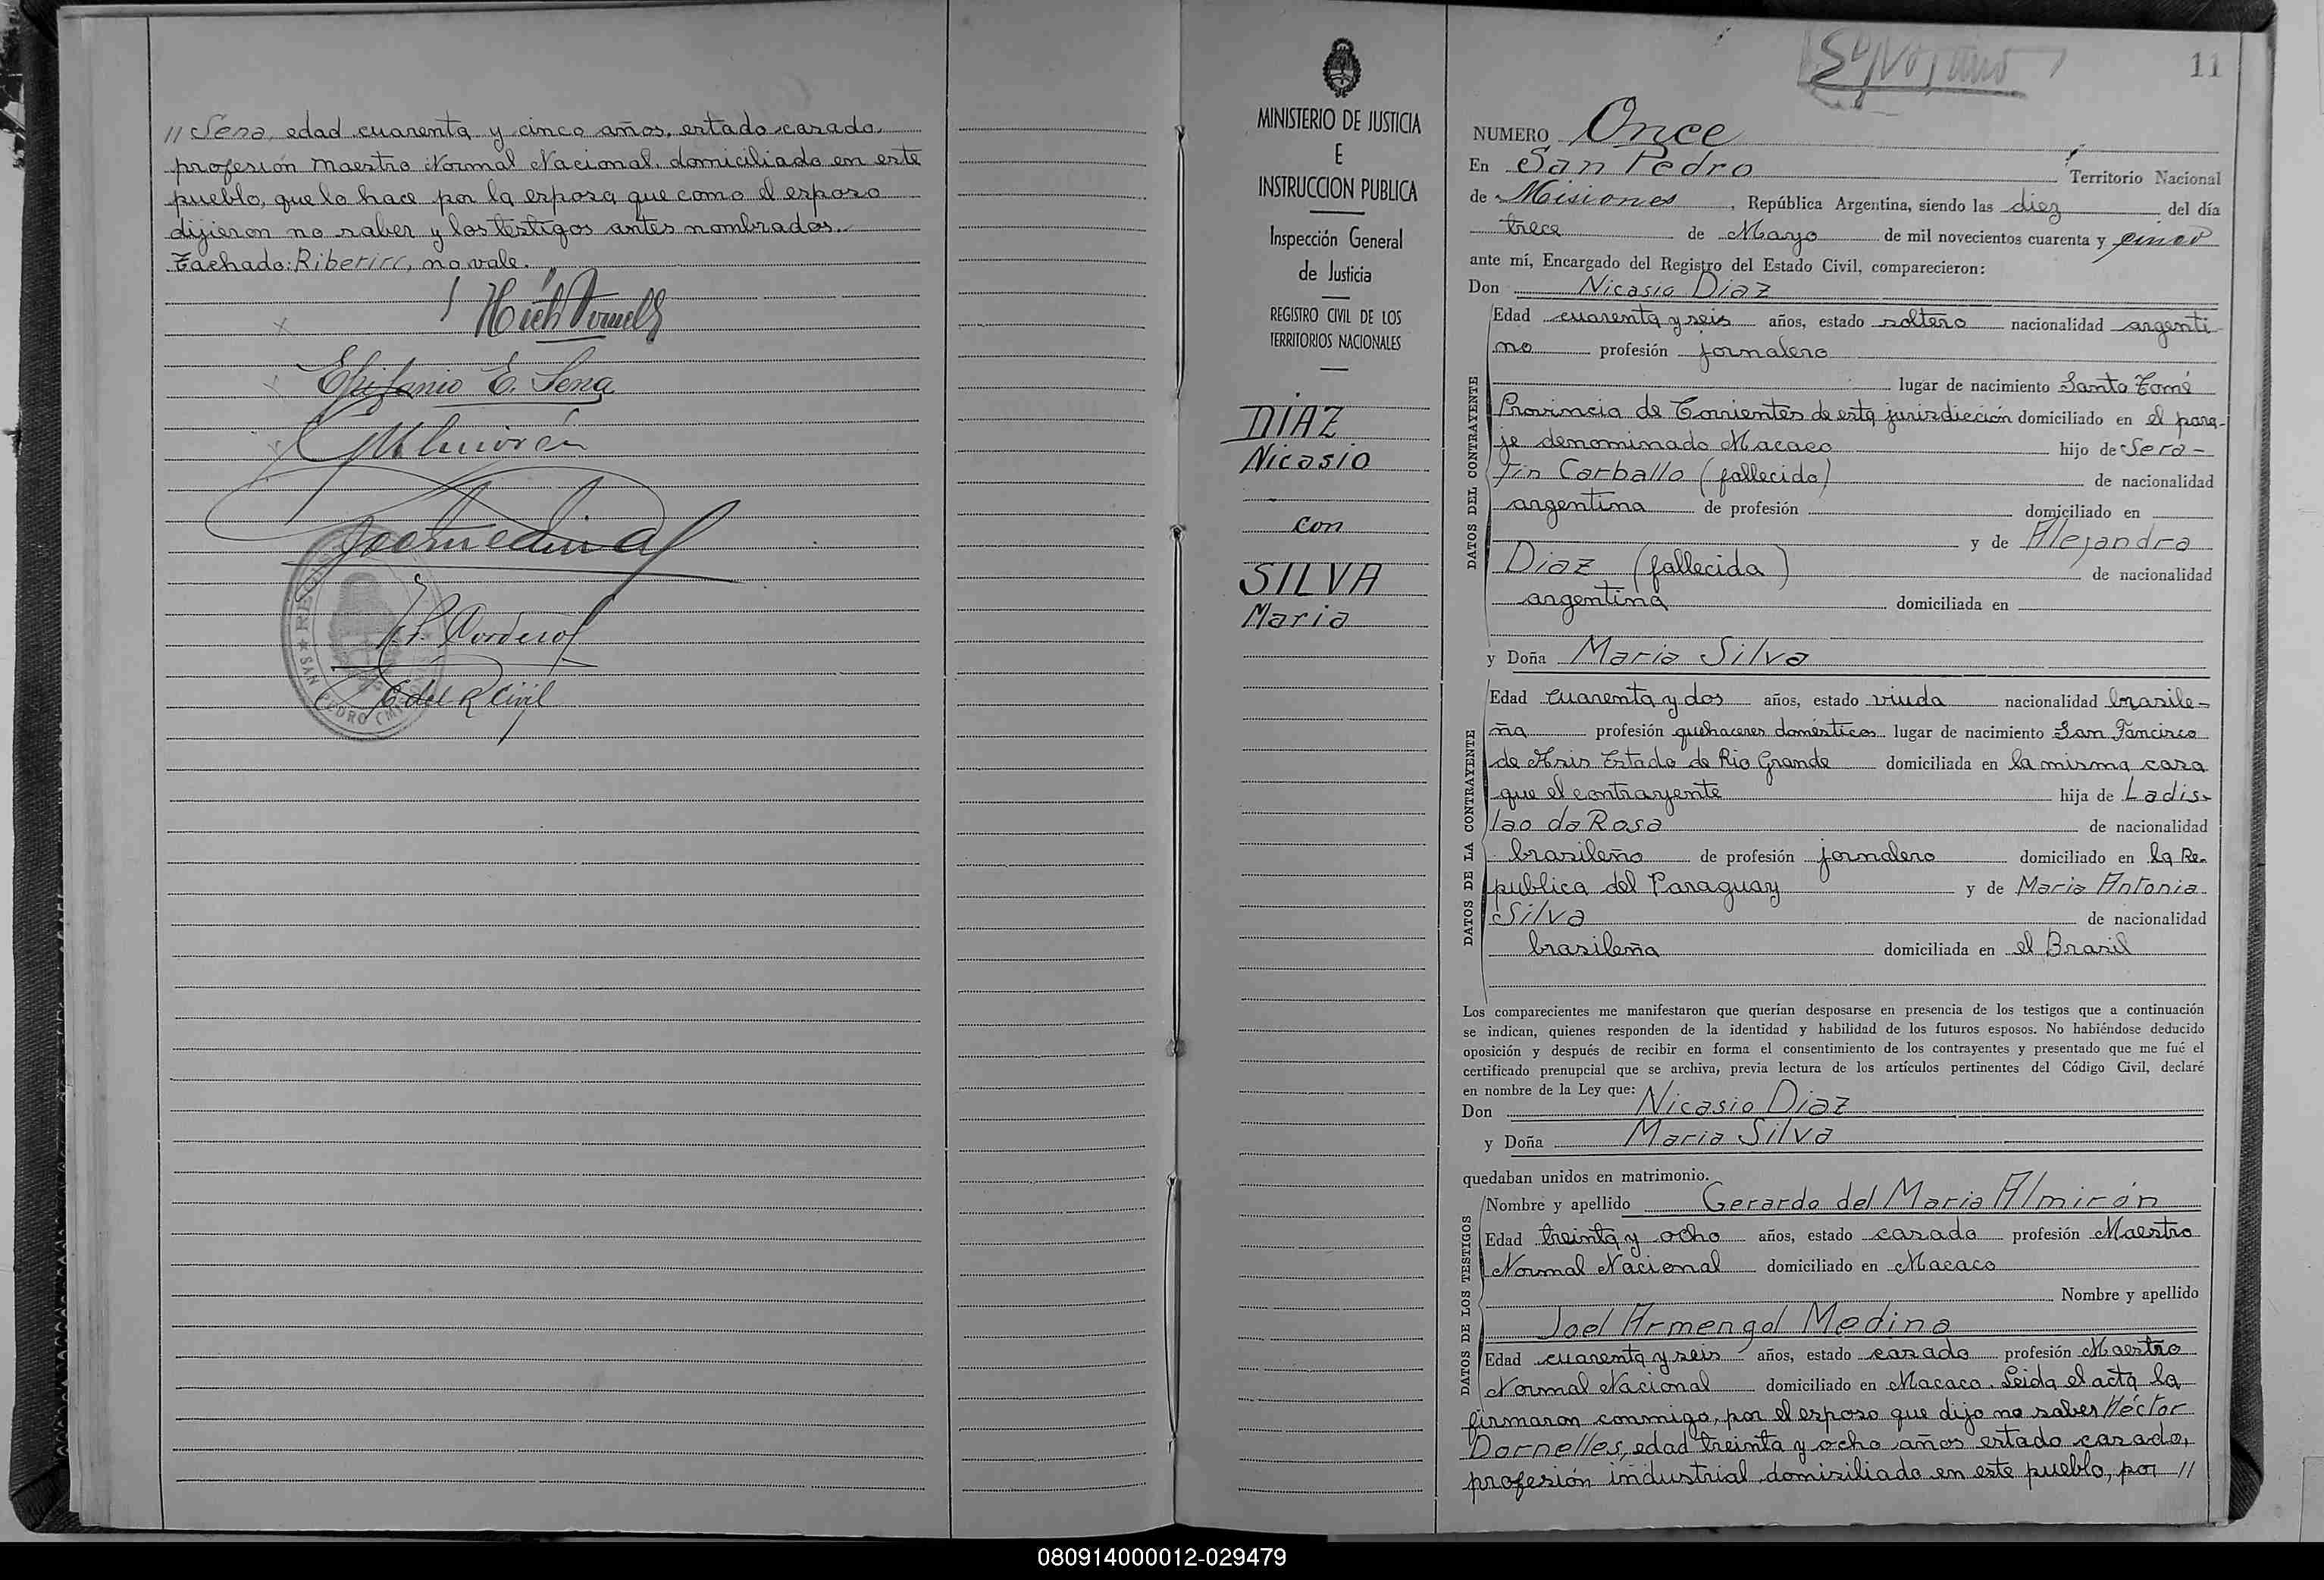 // Sena, edad cuarenta y cinco años, estado casado,
profesión Maestro Normal Nacional, domiciliado en este
pueblo, que lo hace por la esposa que como el esposo
dijieron no saber y los testigos antes nombrados.
Tachado: Riberirc, no vale.
Epifanio E. Sena
GMAlmirón
JoAMedina
Cordero
E del R Civil
SAN PEDRO
MINISTERIO DE JUSTICIA
E
INSTRUCCION PUBLICA
Inspección General
de Justicia
REGISTRO CIVIL DE LOS
TERRITORIOS NACIONALES
DIAZ
Nicasio
con
SILVA
Maria
11
NUMERO Once
En San Pedro Territorio Nacional
de Misiones, República Argentina, siendo las diez del día
trece de Mayo de mil novecientos cuarenta y cinco
ante mí, Encargado del Registro del Estado Civil, comparecieron:
Don Nicasio Diaz
DATOS DEL CONTRAYENTE
Edad cuarenta y seis años, estado soltero nacionalidad argenti-
no profesión jornalero
lugar de nacimiento Santo Tomé
Provincia de Corrientes de esta jurisdicción domiciliado en el para-
je denominado Macaco hijo de Sera-
fin Carballo (fallecido) de nacionalidad
argentina de profesión domiciliado en
y de Alejandra
Diaz (fallecida) de nacionalidad
argentina domiciliada en
y Doña Maria Silva
DATOS DE LA CONTRAYENTE
Edad cuarenta y dos años, estado viuda nacionalidad brasile-
ña profesión quehaceres domésticos lugar de nacimiento San Fancisco
de Asis Estado de Rio Grande domiciliada en la misma casa
que el contrayente hija de Ladis-
lao da Rosa de nacionalidad
brasileño de profesión jornalero domiciliado en la Re-
publica del Paraguay y de Maria Antonia
Silva de nacionalidad
brasileña domiciliada en el Brasil
Los comparecientes me manifestaron que querían desposarse en presencia de los testigos que a continuación
se indican, quienes responden de la identidad y habilidad de los futuros esposos. No habiéndose deducido
oposición y después de recibir en forma el consentimiento de los contrayentes y presentado que me fué el
certificado prenupcial que se archiva, previa lectura de los artículos pertinentes del Código Civil, declaré
en nombre de la Ley que:
Don Nicasio Diaz
y Doña Maria Silva
quedaban unidos en matrimonio.
DATOS DE LOS TESTIGOS
Nombre y apellido Gerardo del Maria Almirón
Edad treinta y ocho años, estado casado profesión Maestro
Normal Nacional domiciliado en Macaco
Nombre y apellido
Joel Armengol Medina
Edad cuarenta y seis años, estado casado profesión Maestro
Normal Nacional domiciliado en Macaco. Leida el acta la
firmaron conmigo, por el esposo que dijo no saber Héctor
Dornelles, edad treinta y ocho años estado casado,
profesión industrial domisiliado en este pueblo, por //
080914000012-029479